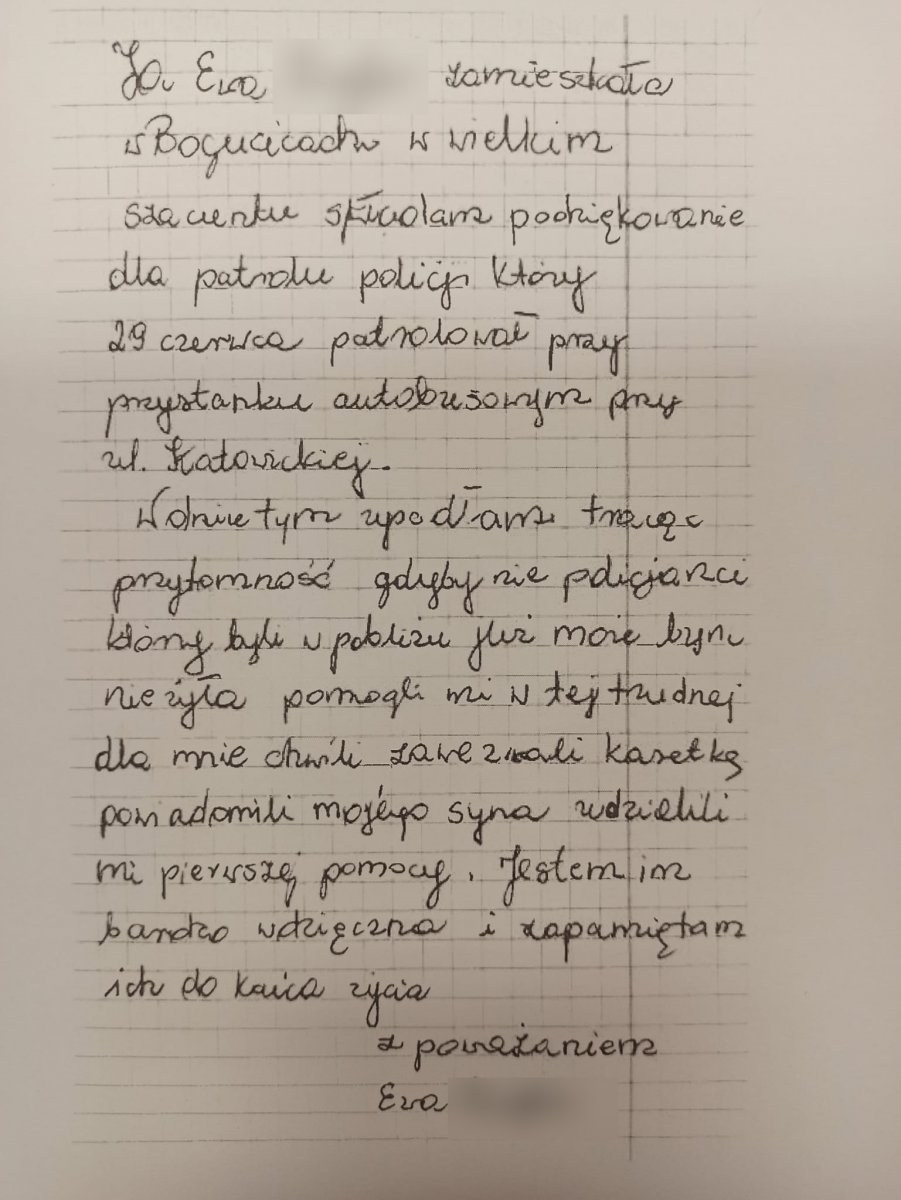 Ja Ewa zamieszkała
w Bogucicach w wielkim
szacunku składam podziękowanie
dla patrolu policji który
29 czerwca patrolował przy
przystanku autobusowym przy
ul. Katowickiej.
W dniu tym upadłam tracąc
przytomność gdyby nie policjanci
którzy byli w pobliżu już może bym
nie żyła pomogli mi w tej trudnej
dla mnie chwili zawezwali karetkę
powiadomili mojego syna udzielili
mi pierwszej pomocy. Jestem im
bardzo wdzięczna i zapamiętam
ich do końca życia
z poważaniem
Ewa